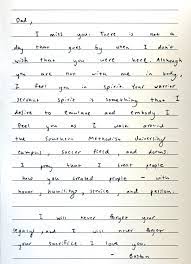 Dad,
I miss you. There is not a
day that goes by when I don't
wish that you were here. Although
you are not with me in body,
I feel you in spirit. Your warrior
servant spirit is something that I
desire to emulate and embody. I
feel you as I walk around
the Southern Methodist University
campus, soccer field, and dorms.
I pray that I treat people
how you treated people - with
honor, humility, service, and passion.
I will never forget your
legacy and I will never forget
your sacrifice. I love you.